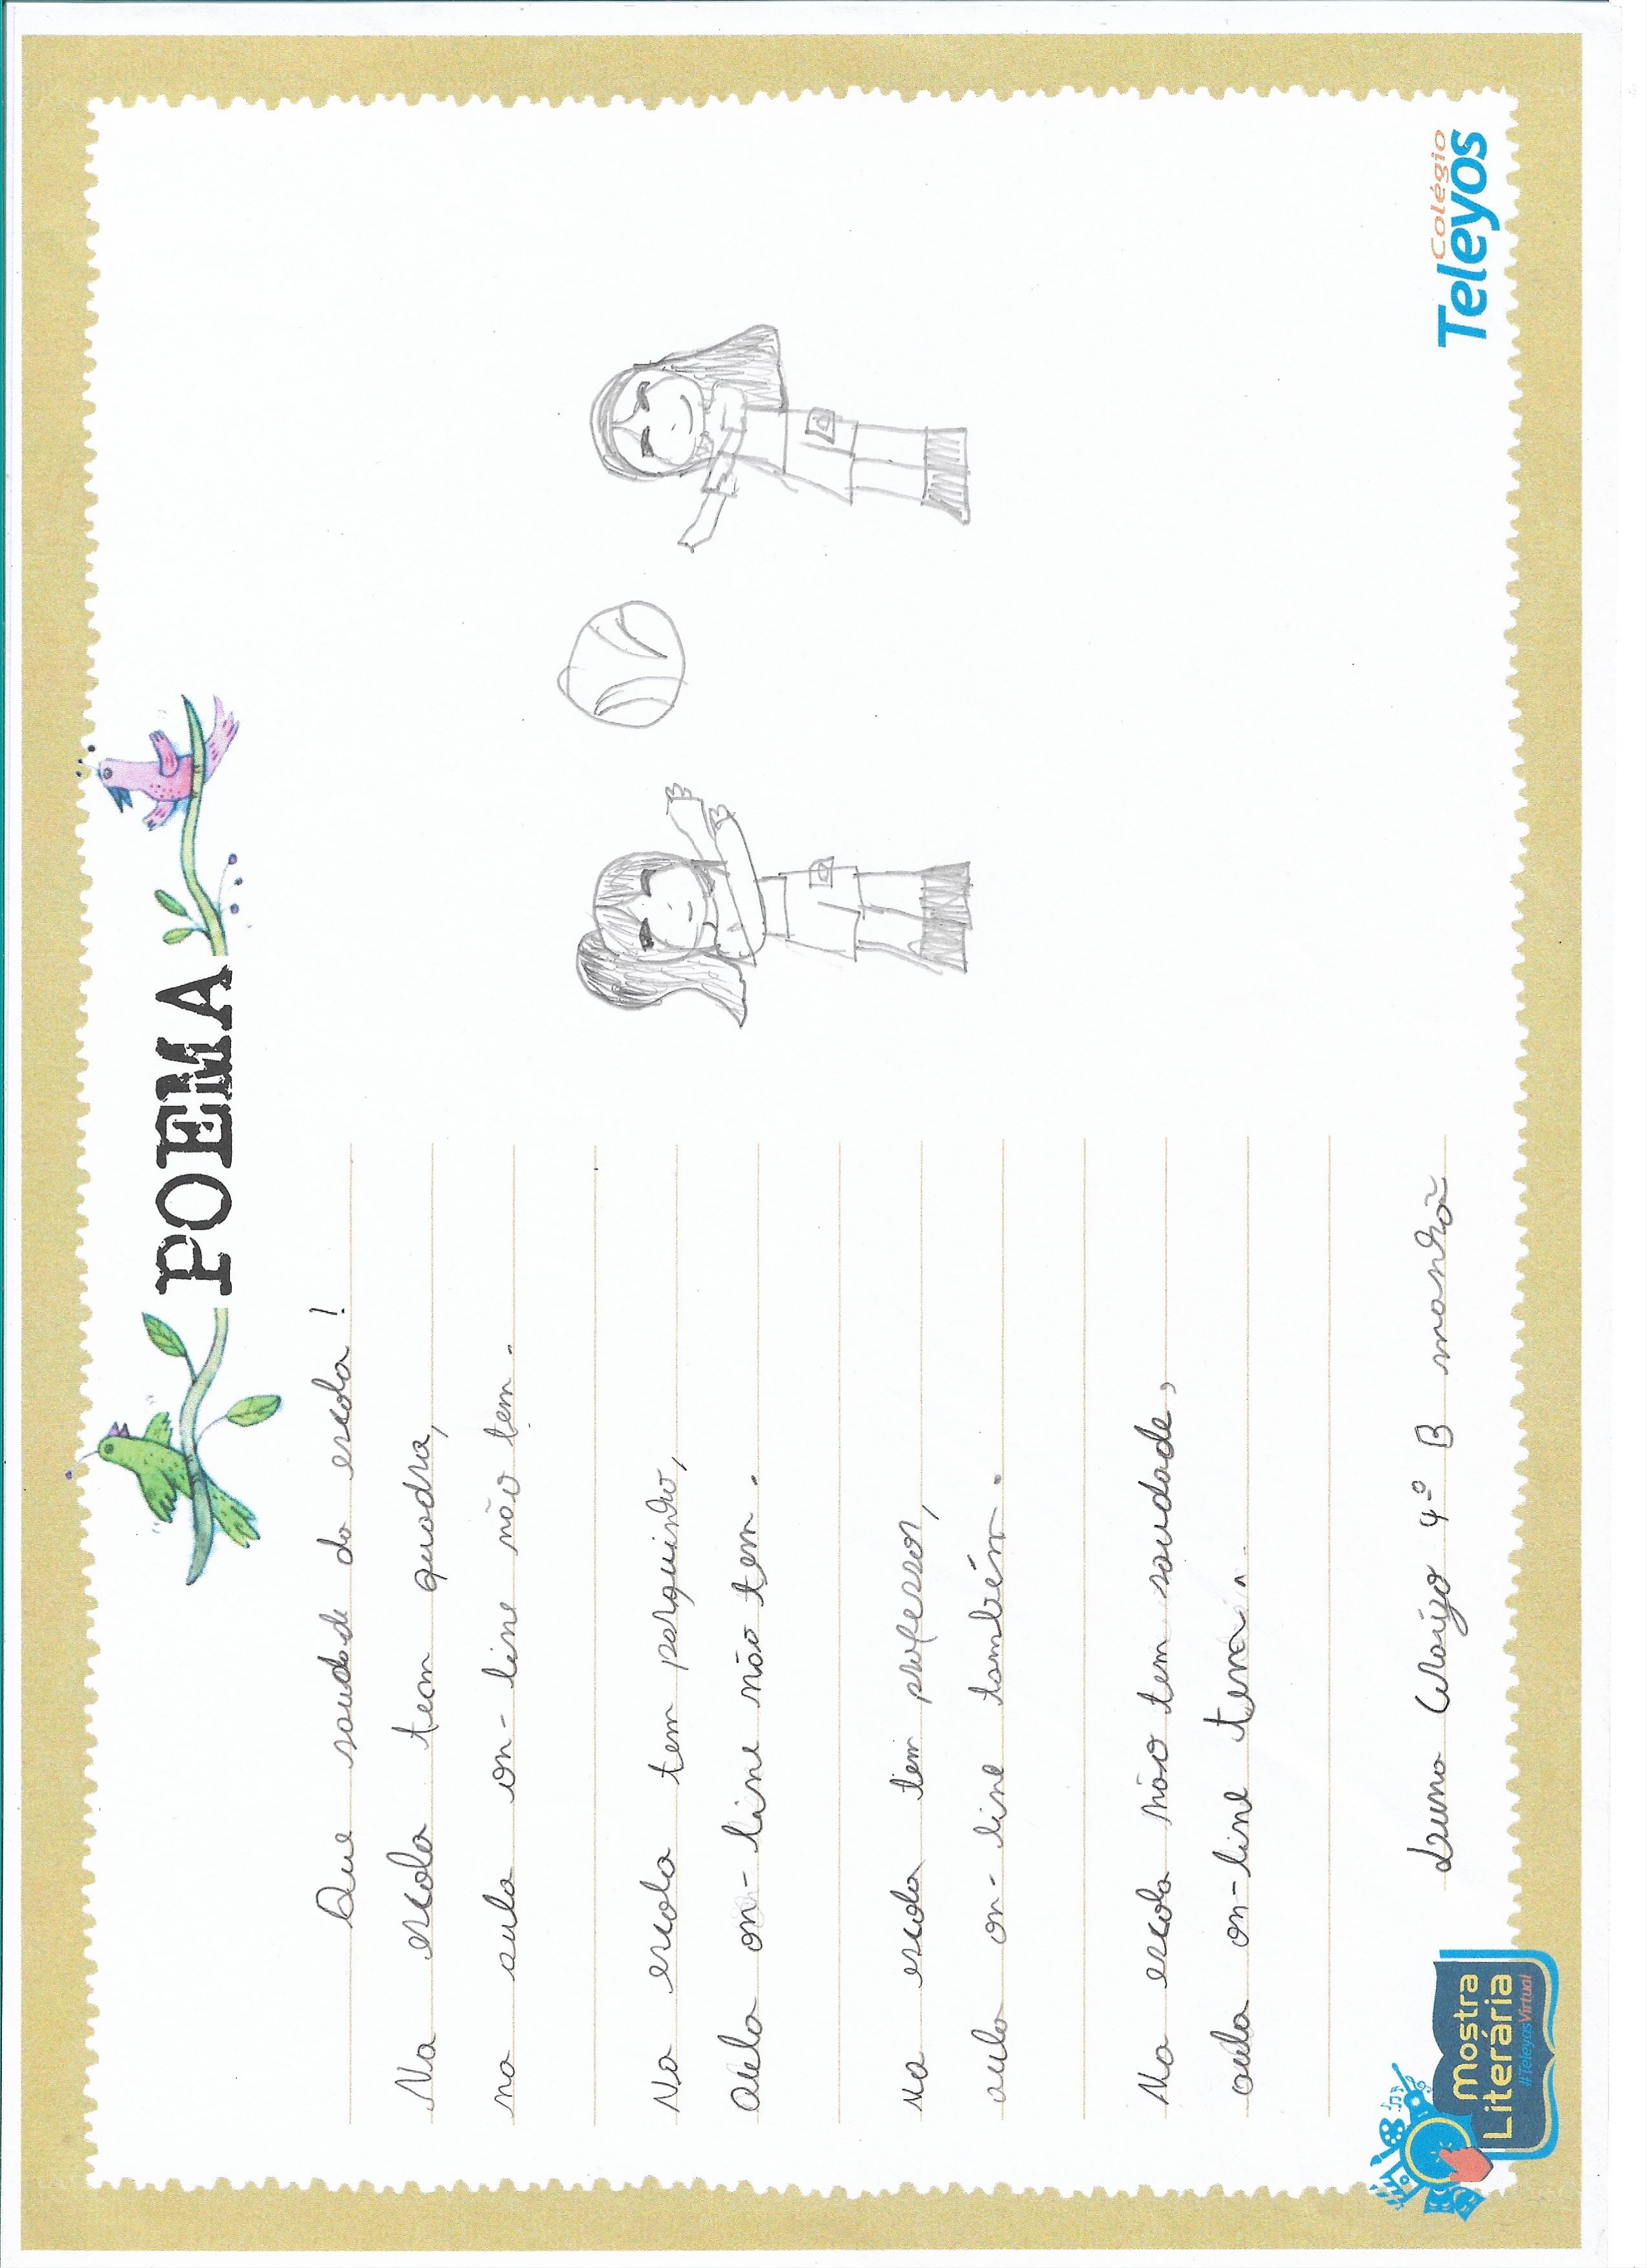 POEMA
Que saudade da escola!
Na escola tem quadra,
na aula on-line não tem.
Na escola tem parquinho,
Aula on-line não tem.
Na escola tem professor,
aula on-line também.
Na escola não tem saudade,
aula on-line tem.
4º B manhã
Mostra
Literária
#TeleyosVirtual
Colégio
Teleyos